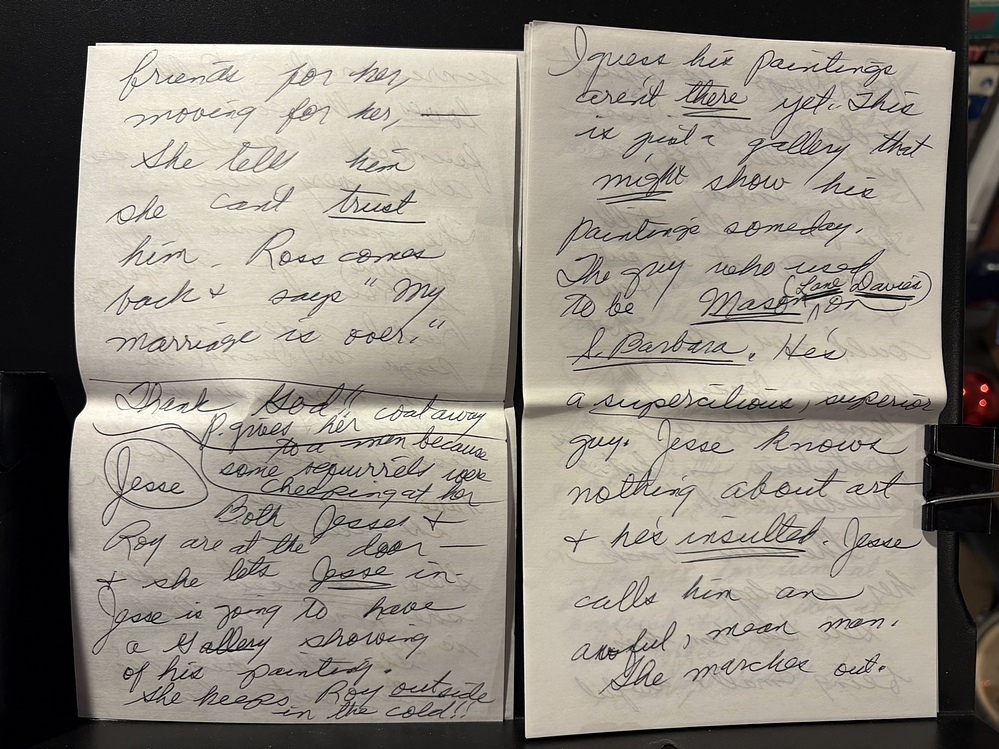 friends for her,
moving for her,
She tells him
she can't trust
him. Ross comes
back & says "My
marriage is over."
Thank God!!
P. gives her coat away
to a man because
some squirrels were
cheeping at her
Jesse
Both Jesse &
Roy are at the door —
& she lets Jesse in.
Jesse is going to have
a Gallery showing
of his painting.
She keeps Roy outside
in the cold!!
I guess his paintings
aren't there yet. This
is just a gallery that
might show his
paintings someday.
The guy who used
to be Mason (Lane Davies) on
S. Barbara. He's
a supercilious, superior
guy. Jesse knows
nothing about art
& he's insulted. Jesse
calls him an
awful, mean man.
She marches out.